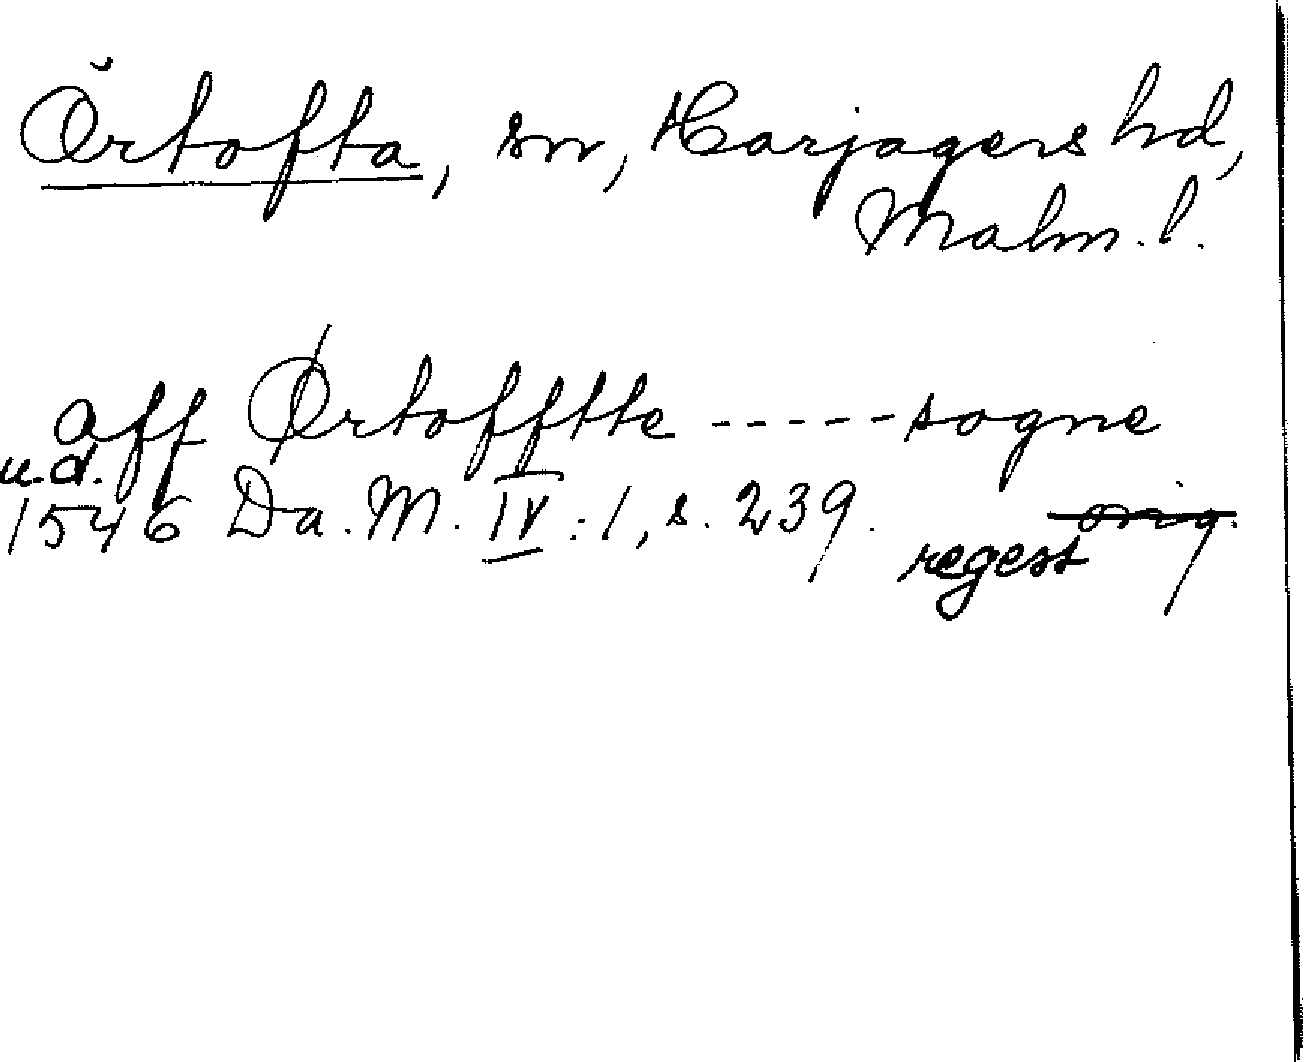 Örtofta, sn, Harjagers hd,
Malm. l.
aff Ørtofftte ----- sogne
u.d.
1546 Da. M. IV : 1, s. 239. orig.
regest